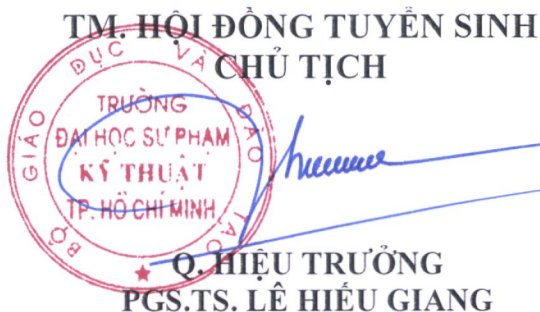 TM. HỘI ĐỒNG TUYỂN SINH
CHỦ TỊCH
BỘ GIÁO DỤC VÀ ĐÀO TẠO
TRƯỜNG
ĐẠI HỌC SƯ PHẠM
KỸ THUẬT
TP. HỒ CHÍ MINH
Q. HIỆU TRƯỞNG
PGS.TS. LÊ HIẾU GIANG